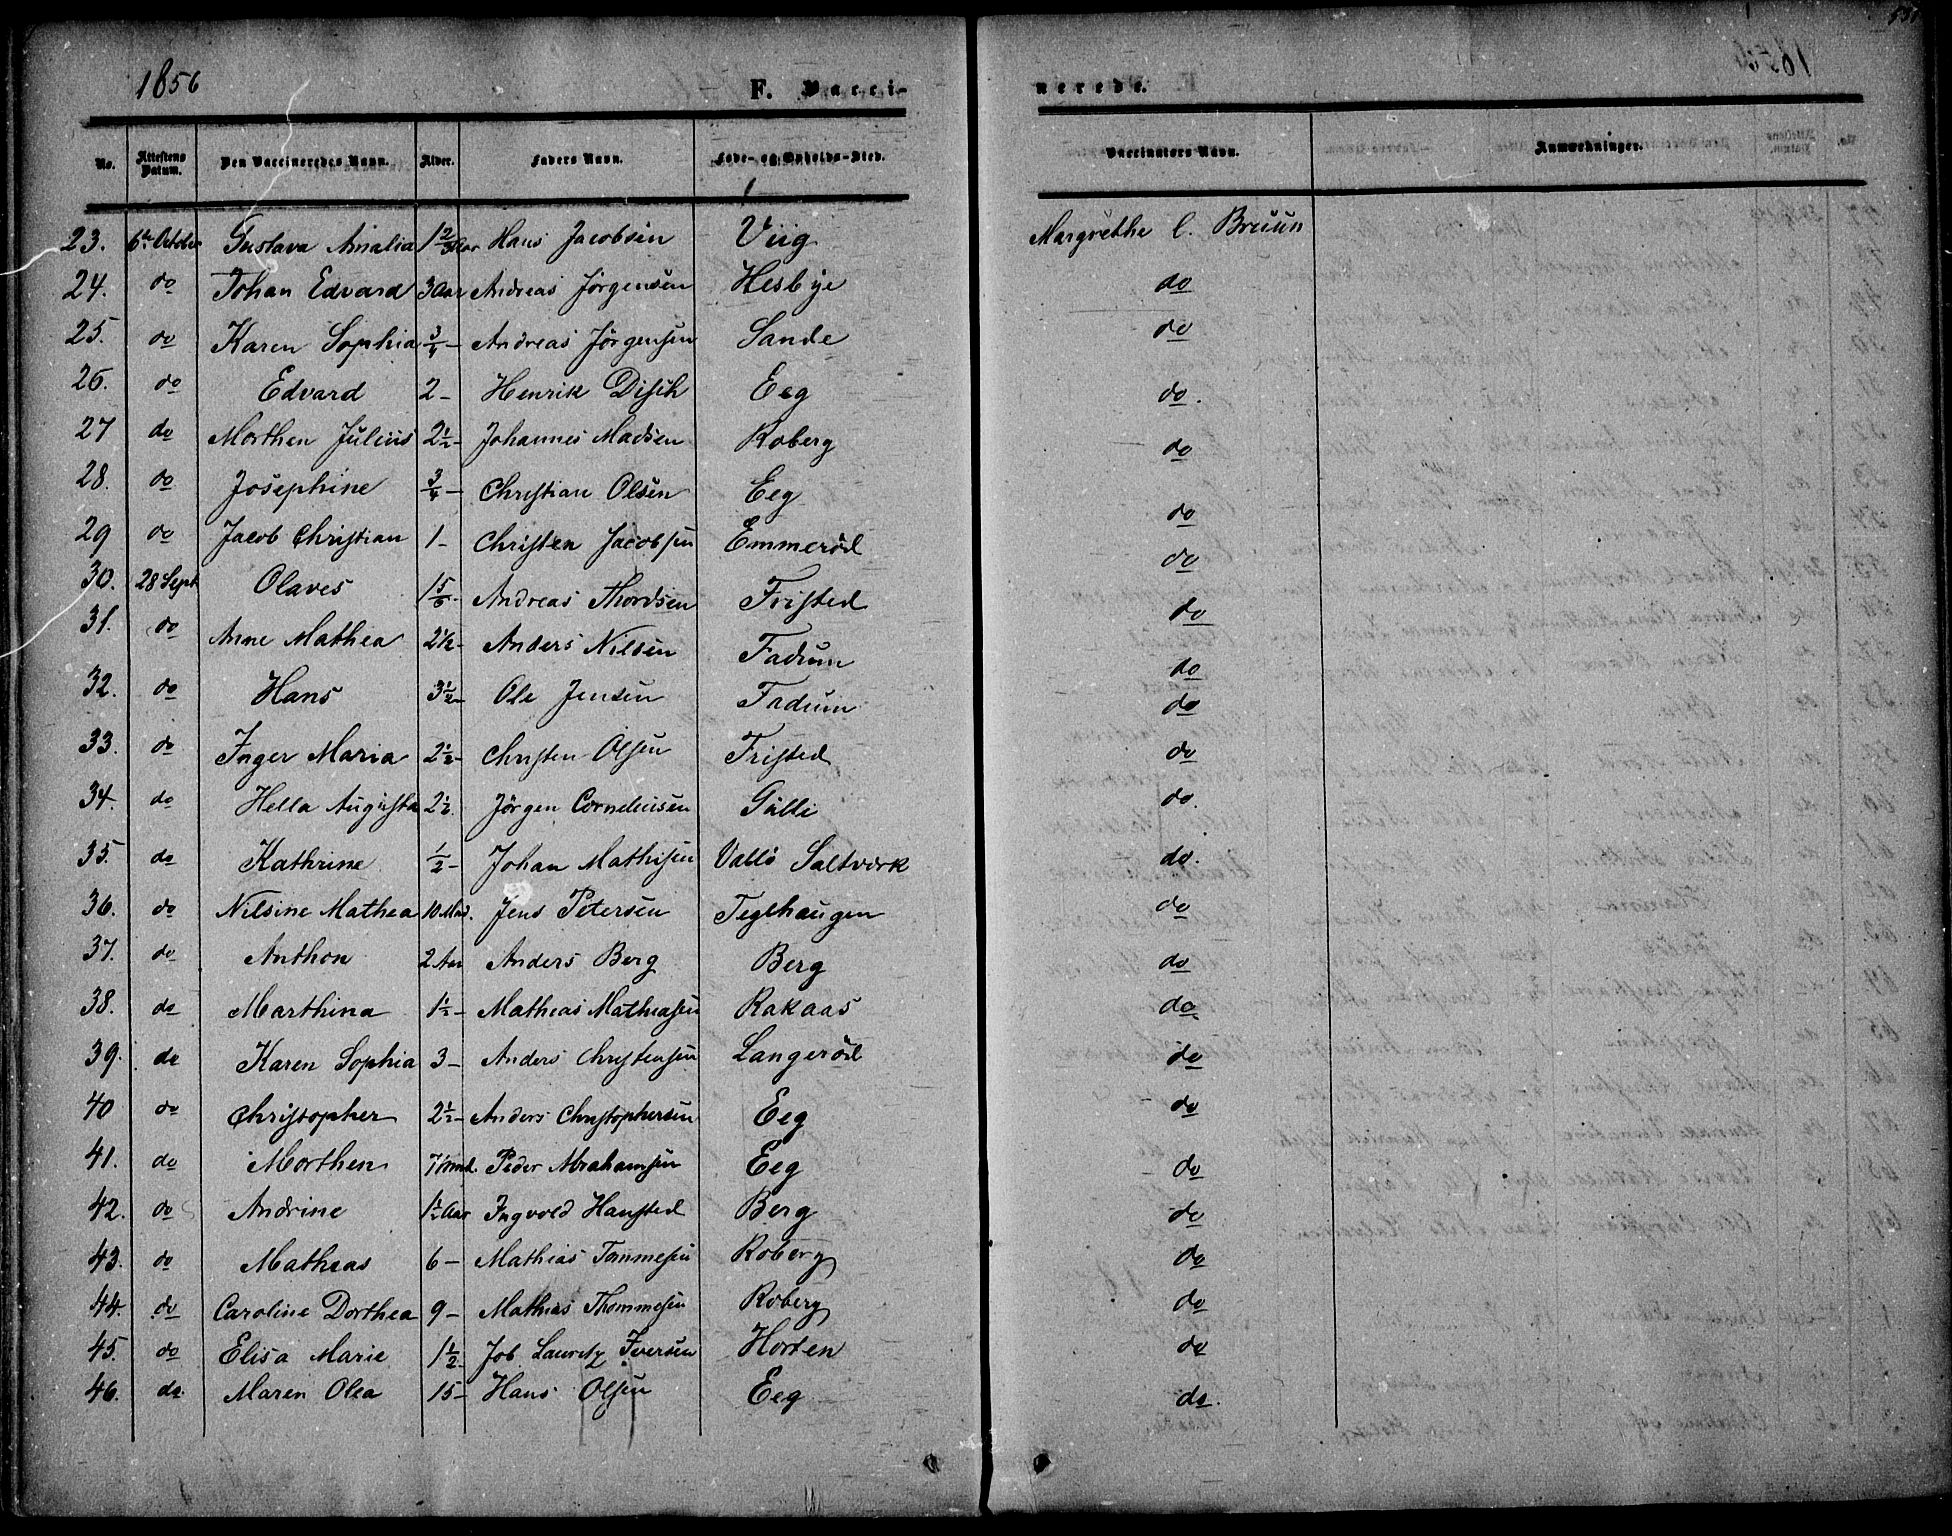 1856
F. Vacci-
nerede.
No. Attestens Datum. Den Vaccineredes Navn. Alder. Faders Navn. Føde- og Opholds-Sted. Vaccinators Navn. Anmærkninger.
23. 6te October Gustava Amalia 1 2/3 Aar Hans Jacobsen Viig Margrethe C. Bruun
24. do Johan Edvard 3 Aar Andreas Jörgensen Hesbye do
25. do Karen Sophia 3/4 – Andreas Jörgensen Sande do
26. do Edvard 2 – Henrik Disch Eeg do.
27 do Morthen Julius 2 1/2 – Johannes Madsen Roberg do
28. do Josephine 3/4 – Christian Olsen Eeg do
29 do Jacob Christian 1 – Christen Jacobsen Emmeröd do
30. 28 Sept Olaves 1 5/6 – Andreas Thordsen Fristed do
31. do Anne Mathea 2 1/2 – Anders Nilsen Fadum do
32. do Hans 3 1/2 – Ole Jensen Fadum do
33. do Inger Maria 2 1/2 – Christen Olsen Fristed do
34. do Hella Augusta 2 1/2 Jörgen Corneliusen Gulli do.
35. do Kathrine 1/2 – Johan Mathisen Vallö Saltværk do.
36. do Nilsine Mathea 10 Mnd. Jens Petersen Teglhaugen do
37. do Anthon 2 Aar Anders Berg Berg do
38. do Marthina 1 1/2 – Mathias Mathiasen Rakaas do
39. do Karen Sophia 3 – Anders Christensen Langeröd do
40 do Christopher 2 1/2 – Anders Christophersen Eeg do
41. do Morthen 7 Mnd. Peder Abrahamsen Eeg do
42. do Andrine 1 1/2 Aar Ingvold Hansted Berg do
43. do Matheas 6 – Mathias Tommesen Roberg do
44. do Caroline Dorthea 9 – Mathias Thommesen Roberg do
45. do Elisa Marie 1 1/2 – Job. Lauritz Iversen Horten do
46. do. Maren Olea 15 – Hans Olsen Eeg do.